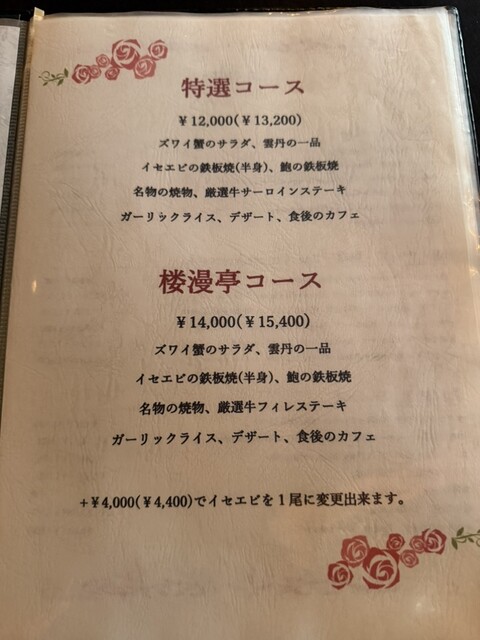 特選コース
￥12,000(￥13,200)
ズワイ蟹のサラダ、雲丹の一品
イセエビの鉄板焼(半身)、鮑の鉄板焼
名物の焼物、厳選牛サーロインステーキ
ガーリックライス、デザート、食後のカフェ
楼漫亭コース
￥14,000(￥15,400)
ズワイ蟹のサラダ、雲丹の一品
イセエビの鉄板焼(半身)、鮑の鉄板焼
名物の焼物、厳選牛フィレステーキ
ガーリックライス、デザート、食後のカフェ
+￥4,000(￥4,400)でイセエビを１尾に変更出来ます。